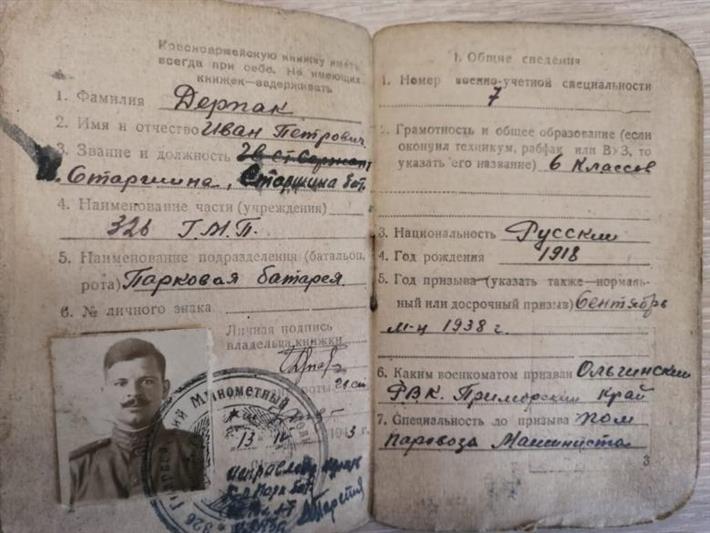 Красноармейскую книжку иметь
всегда при себе. Не имеющих
книжек—задерживать
1. Фамилия Дерпак
2. Имя и отчество Иван Петрович
3. Звание и должность
Старшина, Старшина бат.
4. Наименование части (учреждения)
326 Г.М.П.
5. Наименование подразделения (батальон,
рота) Парковая батарея
6. № личного знака
Личная подпись
владельца книжки
326 Минометный
13
3 г.
1. Общие сведения
1. Номер военно-учетной специальности
7
2. Грамотность и общее образование (если
окончил техникум, рабфак или ВУЗ, то
указать его название) 6 классов
3. Национальность Русский
4. Год рождения 1918
5. Год призыва (указать также—нормаль-
ный или досрочный призыв) Сентябрь
м-ц 1938 г.
6. Каким военкоматом призван Ольгинским
РВК. Приморский Край
7. Специальность до призыва пом
паровоза Машиниста
3